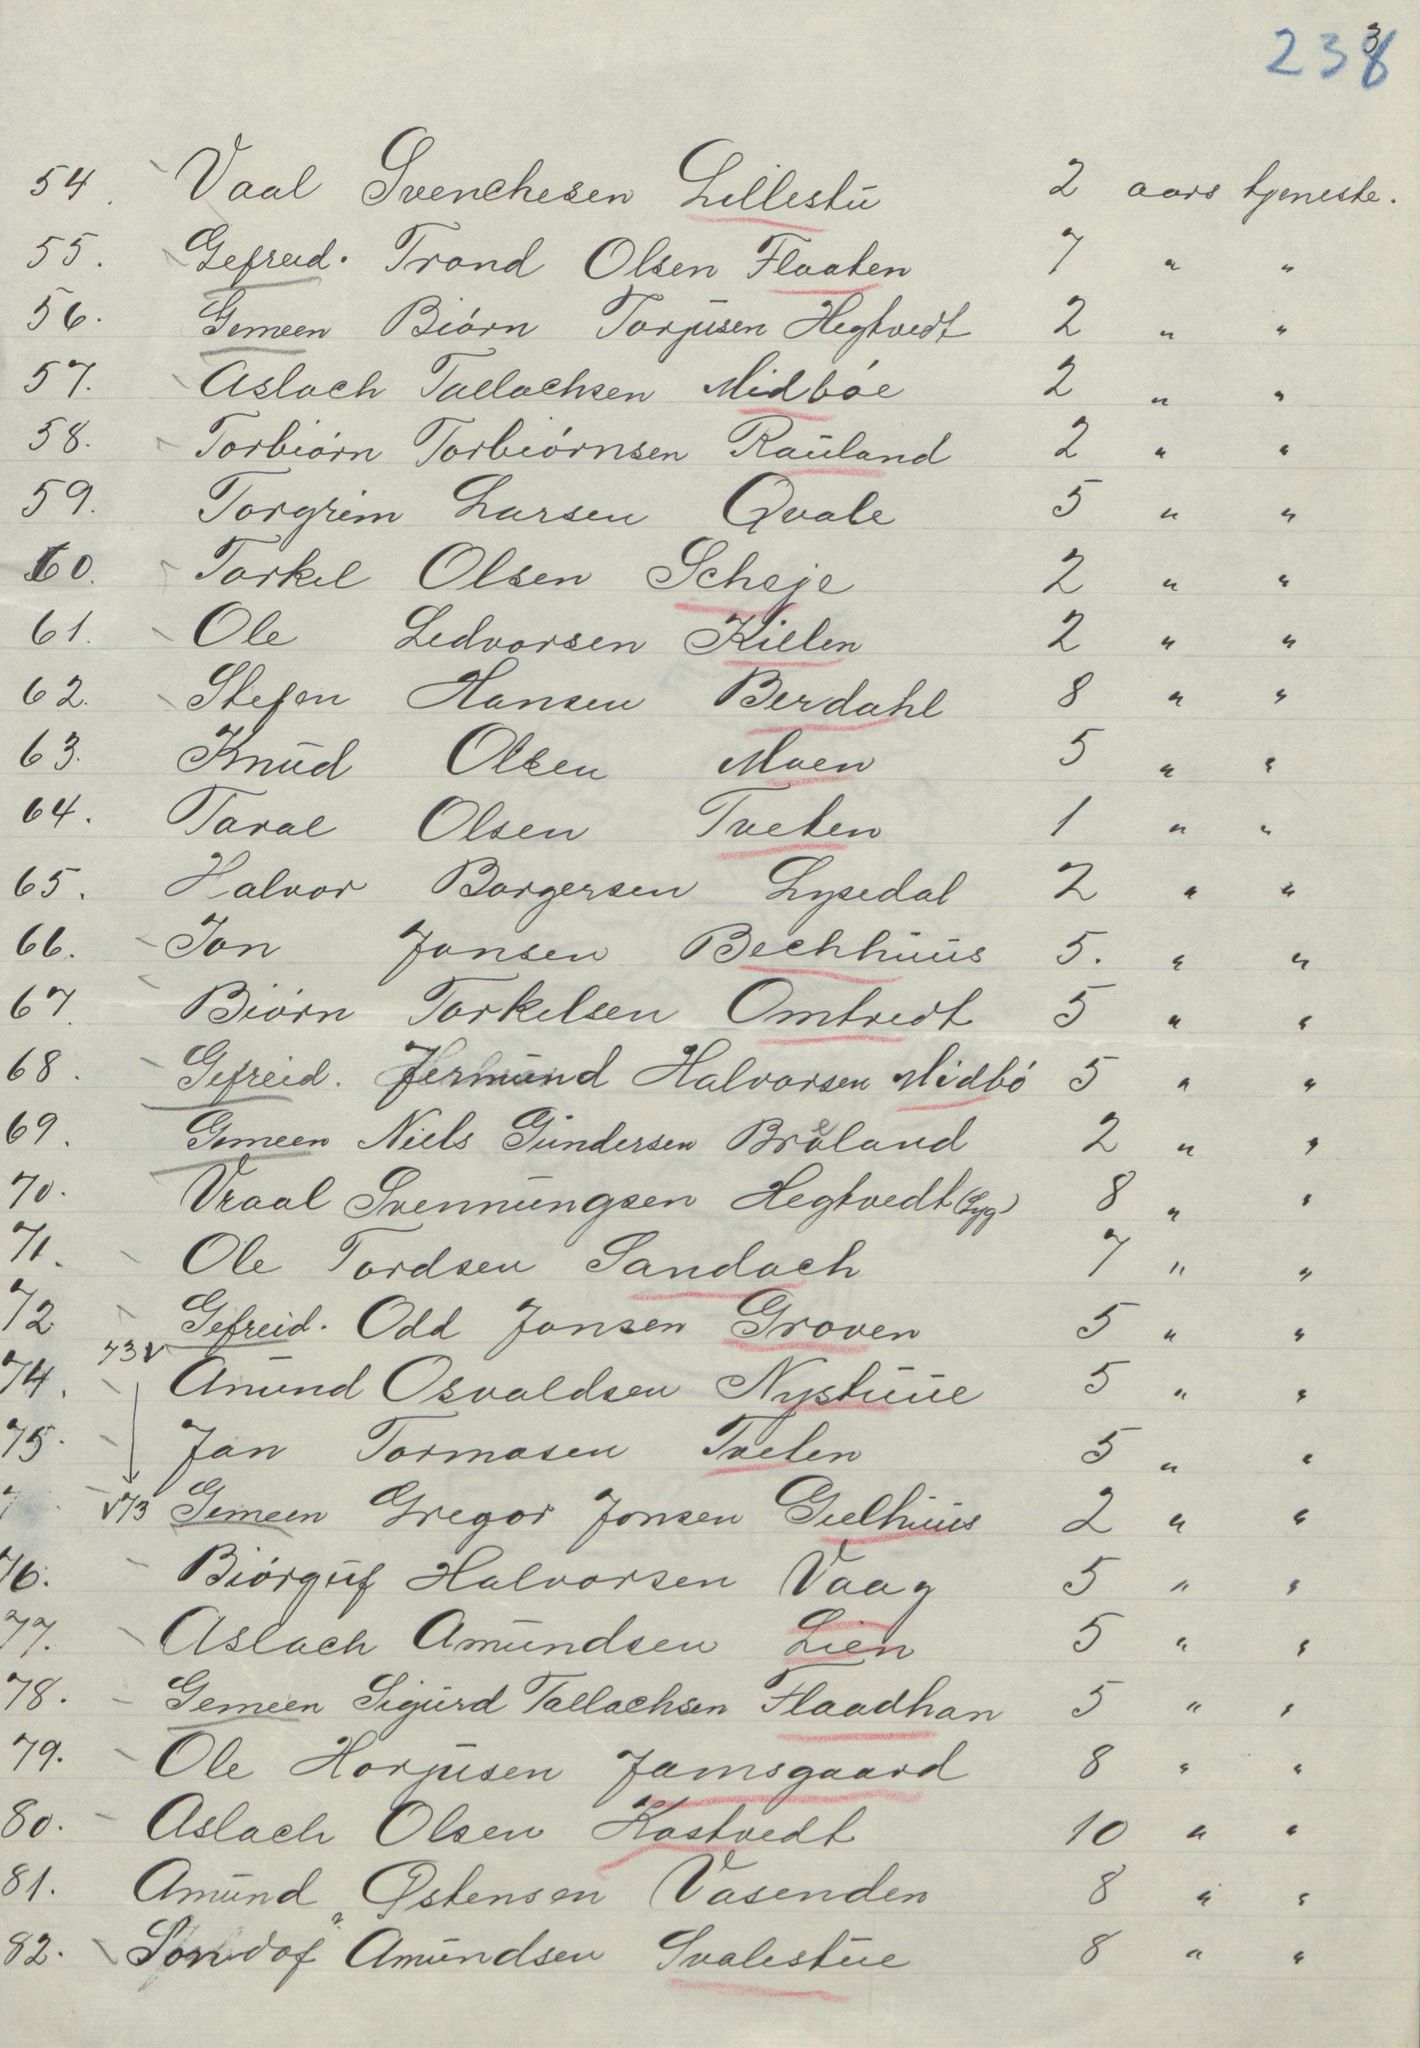 2338
54. Vaal Svenchesen Lillestü 2 aars tjeneste.
55. Gefreid. Trond Olsen Flaaten 7 " "
56. Gemeen Biórn Torjüsen Hegtvedt 2 " "
57. Aslach Tallachsen Midbóe 2 " "
58. Torbiórn Torbiórnsen Raüland 2 " "
59. Torgrim Larsen Qvale 5 " "
60. Torkel Olsen Scheje 2 " "
61. Ole Ledvorsen Killen 2 " "
62. Stefen Hansen Berdahl 8 " "
63. Knüd Olsen Moen 5 " "
64. Taral Olsen Tveten 1 " "
65. Halvor Borgersen Lysedal 2 " "
66. Jon Jonsen Bechhüüs 5. " "
67. Biórn Torkelsen Omtvedt 5 " "
68. Gefreid. Jermünd Halvorsen Midbó 5 " "
69. Gemeen Niels Gündersen Bróland 2 " "
70. Vraal Svennüngsen Hegtvedt (Syg) 8 " "
71. Ole Tordsen Sandoch 7 " "
72 Gefreid. Odd Jonsen Groven 5 " "
73 v
74. Anünd Osvaldsen Nystüüe 5 " "
75. Jon Tormosen Tveten 5 " "
v73 Gemeen Gregor Jonsen Gielhüüs 2 " "
76. Biórgüf Halvorsen Vaag 5 " "
77. Aslach Amündsen Lien 5 " "
78. Gemeen Sigürd Tallachsen Flaadhan 5 " "
79. Ole Horjüsen Jamsgaard 8 " "
80. Aslach Olsen Kostvedt 10 " "
81. Amünd Østensen Vasenden 8 " "
82. Amündsen Svalestüe 8 " "